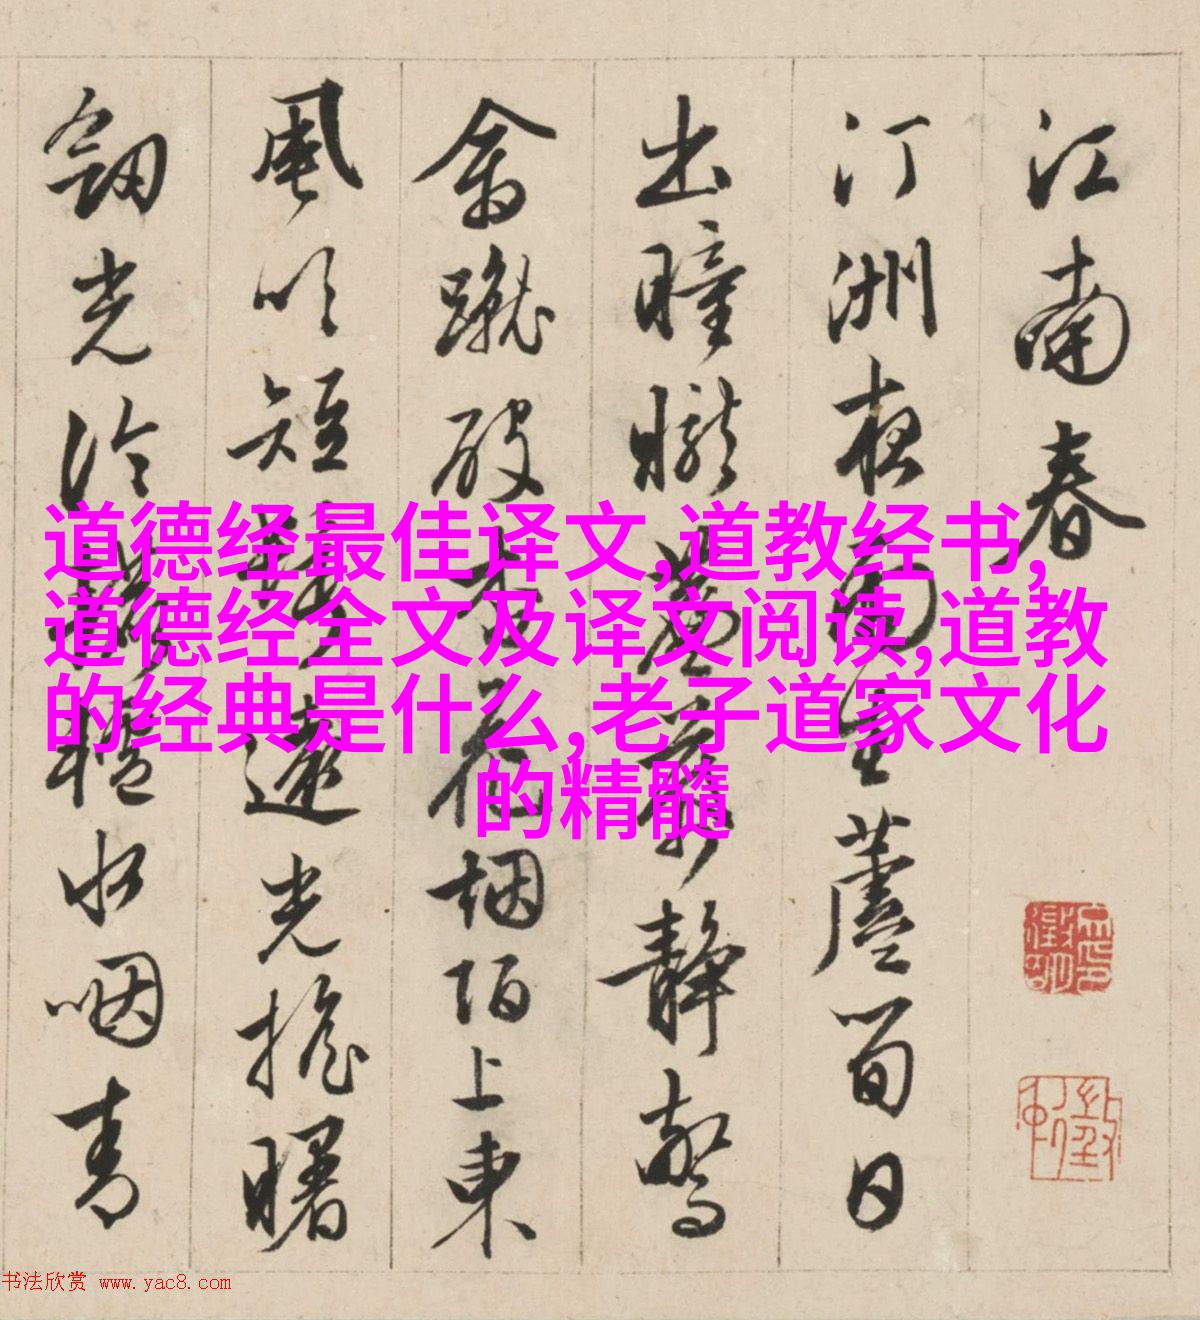 江南春
汀洲夜雨生蘆筍日
出曈曨簾幕靜驚
禽蹴破杏花烟陌上東
風吹短鬢遠光搖曙
劒光冷水咽青
道德经最佳译文,道教经书,
道德经全文及译文阅读,道教
的经典是什么,老子道家文化
的精髓
书法欣赏 www.yac8.com